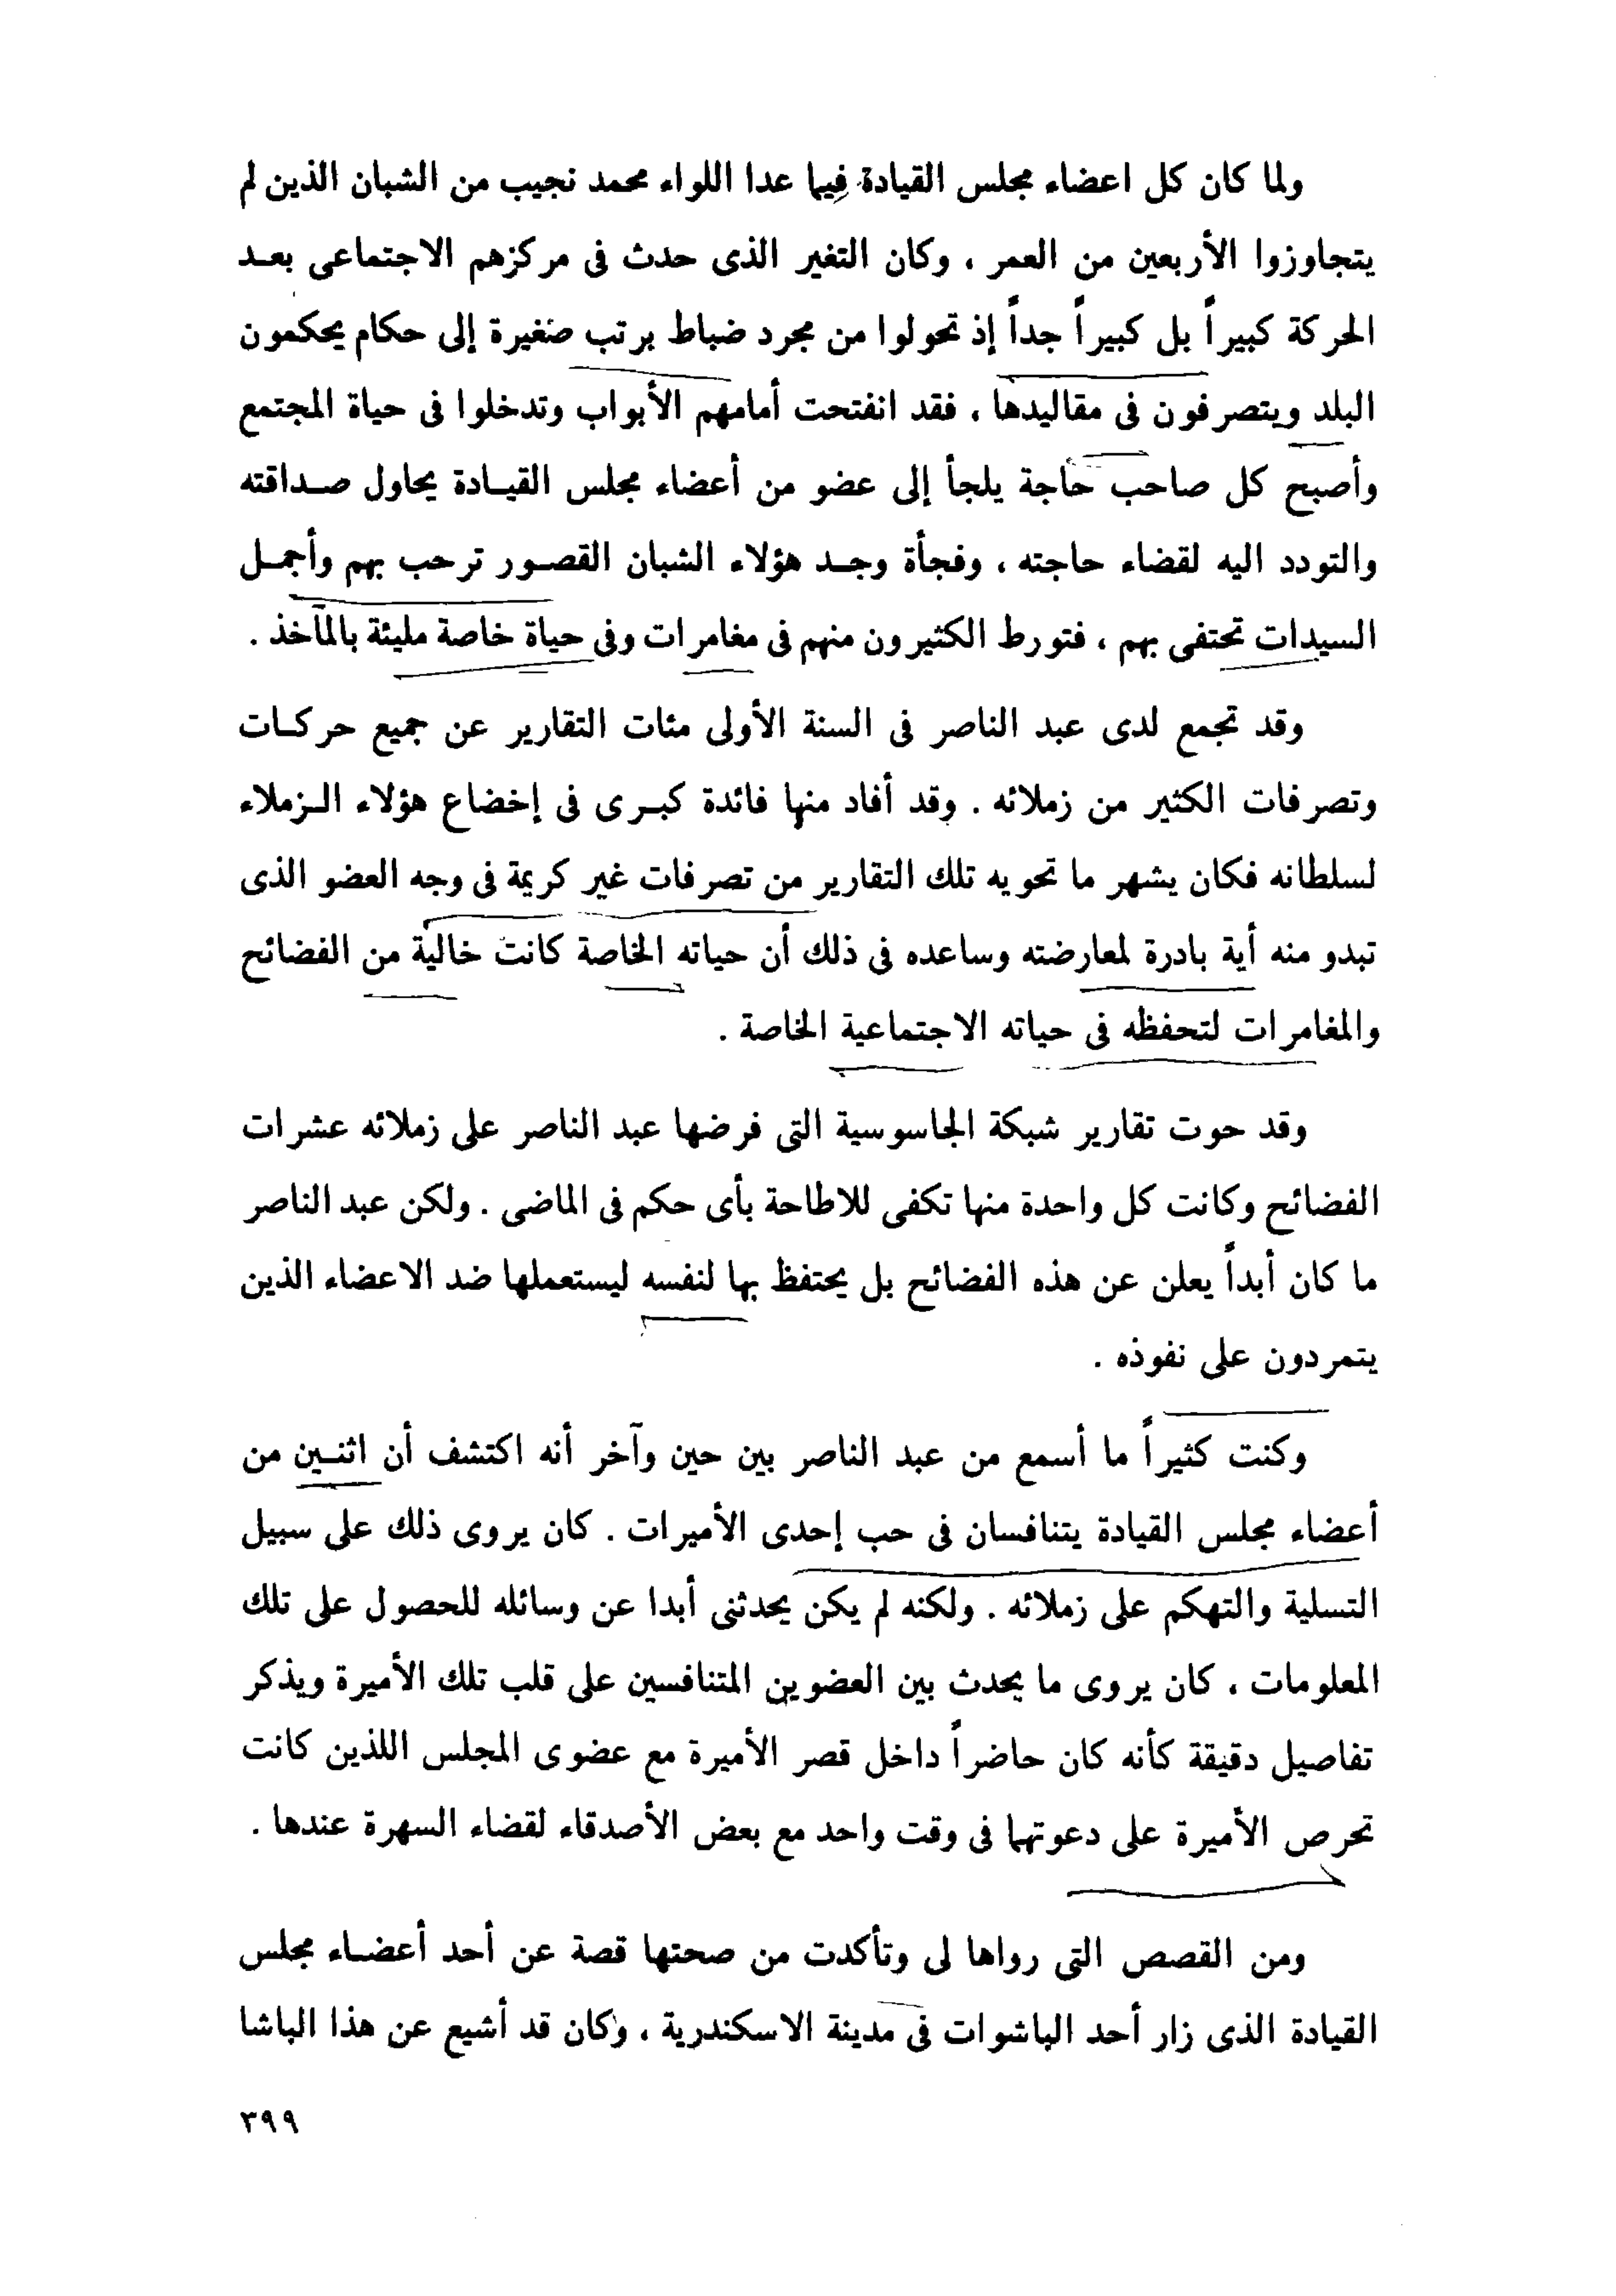 ولما كان كل اعضاء مجلس القيادة فيما عدا اللواء محمد نجيب من الشبان الذين لم
يتجاوزوا الأربعين من العمر ، وكان التغير الذى حدث فى مركزهم الاجتماعى بعد
الحركة كبيراً بل كبيراً جداً إذ تحولوا من مجرد ضباط برتب صغيرة إلى حكام يحكمون
البلد ويتصرفون فى مقاليدها ، فقد انفتحت أمامهم الأبواب وتدخلوا فى حياة المجتمع
وأصبح كل صاحب حاجة يلجأ إلى عضو من أعضاء مجلس القيادة يحاول صداقته
والتودد اليه لقضاء حاجته ، وفجأة وجد هؤلاء الشبان القصور ترحب بهم وأجمل
السيدات تحتفى بهم ، فتورط الكثيرون منهم فى مغامرات وفى حياة خاصة مليئة بالمآخذ .
وقد تجمع لدى عبد الناصر فى السنة الأولى مئات التقارير عن جميع حركات
وتصرفات الكثير من زملائه . وقد أفاد منها فائدة كبرى فى إخضاع هؤلاء الزملاء
لسلطانه فكان يشهر ما تحويه تلك التقارير من تصرفات غير كريمة فى وجه العضو الذى
تبدو منه أية بادرة لمعارضته وساعده فى ذلك أن حياته الخاصة كانت خالية من الفضائح
والمغامرات لتحفظه فى حياته الاجتماعية الخاصة .
وقد حوت تقارير شبكة الجاسوسية التى فرضها عبد الناصر على زملائه عشرات
الفضائح وكانت كل واحدة منها تكفى للاطاحة بأى حكم فى الماضى . ولكن عبد الناصر
ما كان أبداً يعلن عن هذه الفضائح بل يحتفظ بها لنفسه ليستعملها ضد الاعضاء الذين
يتمردون على نفوذه .
وكنت كثيراً ما أسمع من عبد الناصر بين حين وآخر أنه اكتشف أن اثنين من
أعضاء مجلس القيادة يتنافسان فى حب إحدى الأميرات . كان يروى ذلك على سبيل
التسلية والتهكم على زملائه . ولكنه لم يكن يحدثنى أبدا عن وسائله للحصول على تلك
المعلومات ، كان يروى ما يحدث بين العضوين المتنافسين على قلب تلك الأميرة ويذكر
تفاصيل دقيقة كأنه كان حاضراً داخل قصر الأميرة مع عضوى المجلس اللذين كانت
تحرص الأميرة على دعوتهما فى وقت واحد مع بعض الأصدقاء لقضاء السهرة عندها .
ومن القصص التى رواها لى وتأكدت من صحتها قصة عن أحد أعضاء مجلس
القيادة الذى زار أحد الباشوات فى مدينة الاسكندرية ، وكان قد أشيع عن هذا الباشا
٣٩٩